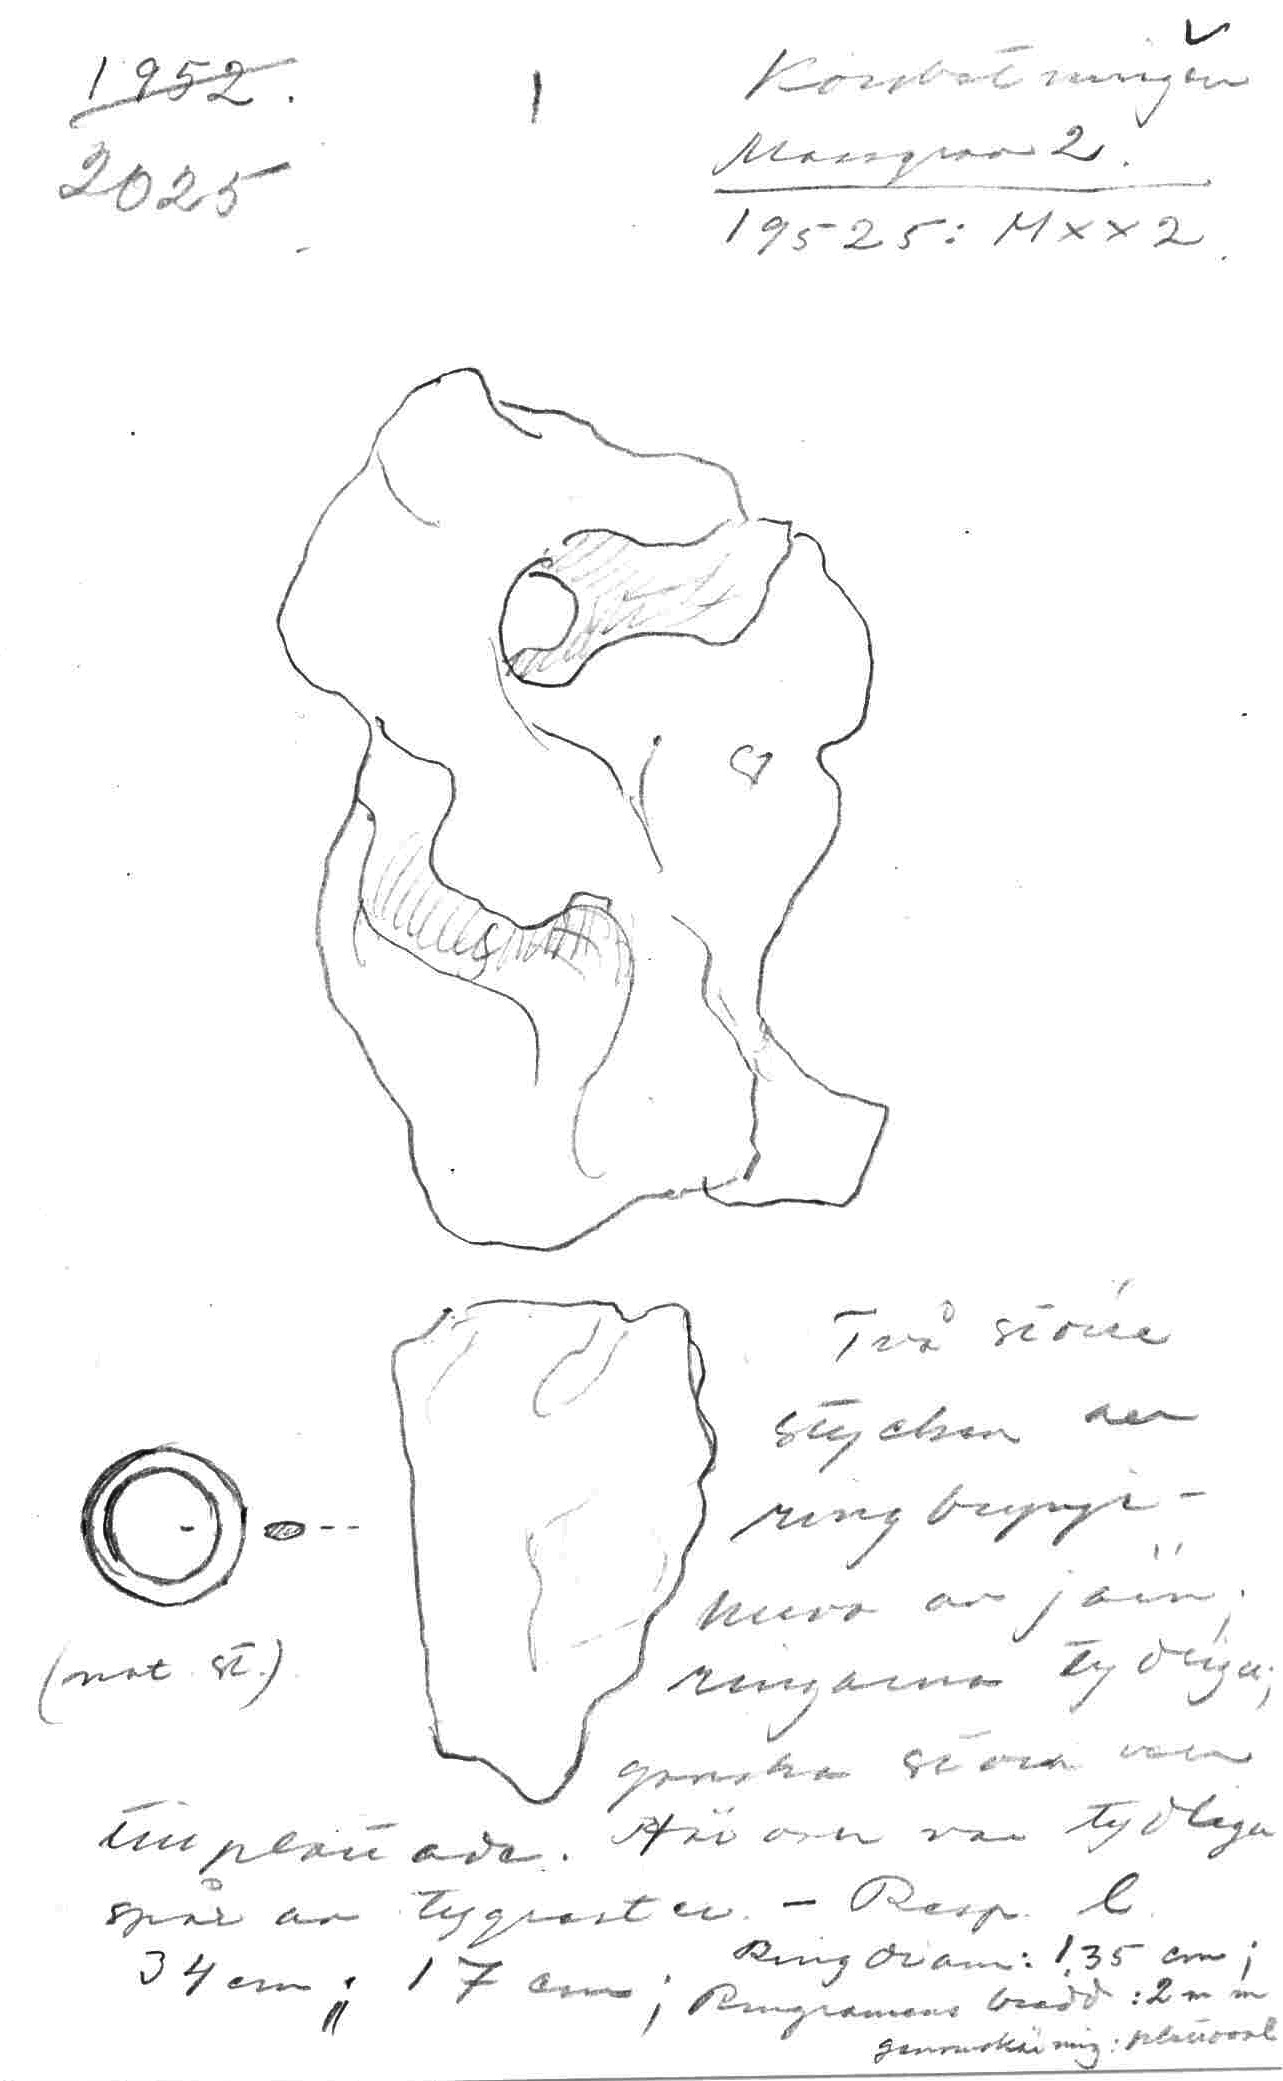 1952.
2025
1
Korsbetningen
Massgrav 2.
19525: MXX2
Två större
stycken av
ringbrynje-
huva av järn;
ringarna tydliga;
ganska stora
tillplattade. Här tydliga
spår av tygrester. - Resp. l.
34 cm; 17 cm; Ringdiam: 1,35 cm;
bredd: 2 mm
genomskärning: plattoval
(nat. st.)